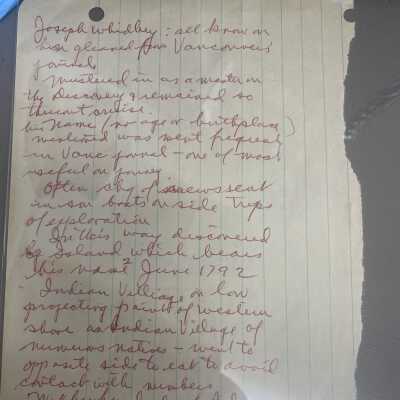 Joseph Whidbey: all know on
him gleaned from Vancouver's
journals
Mustered in as a master on
the Discovery & remained so
thruout cruise.
his name (no age or birthplace)
mentioned was most frequent
in Vanc journal - one of most
useful on journey
Often
in son boats on side trips
of exploration
In this way discovered
big Island which bears
this name June 1792
Indian Village on low
projecting point of western
shore as Indian Village of
numerous natives - went to
opposite side to eat to avoid
contact with numbers